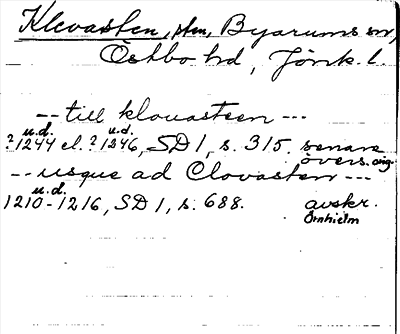 Klevasten, sten, Byarums sn,
Östbo hd, Jönk. l.
-- till klouasteen ---
u.d. u.d.
?1244 el. ?1246, SD 1, s. 315. senare
övers. orig.
-- usque ad Clovasten ---
u.d.
1210-1216, SD 1, s. 688. avskr.
Örnhielm